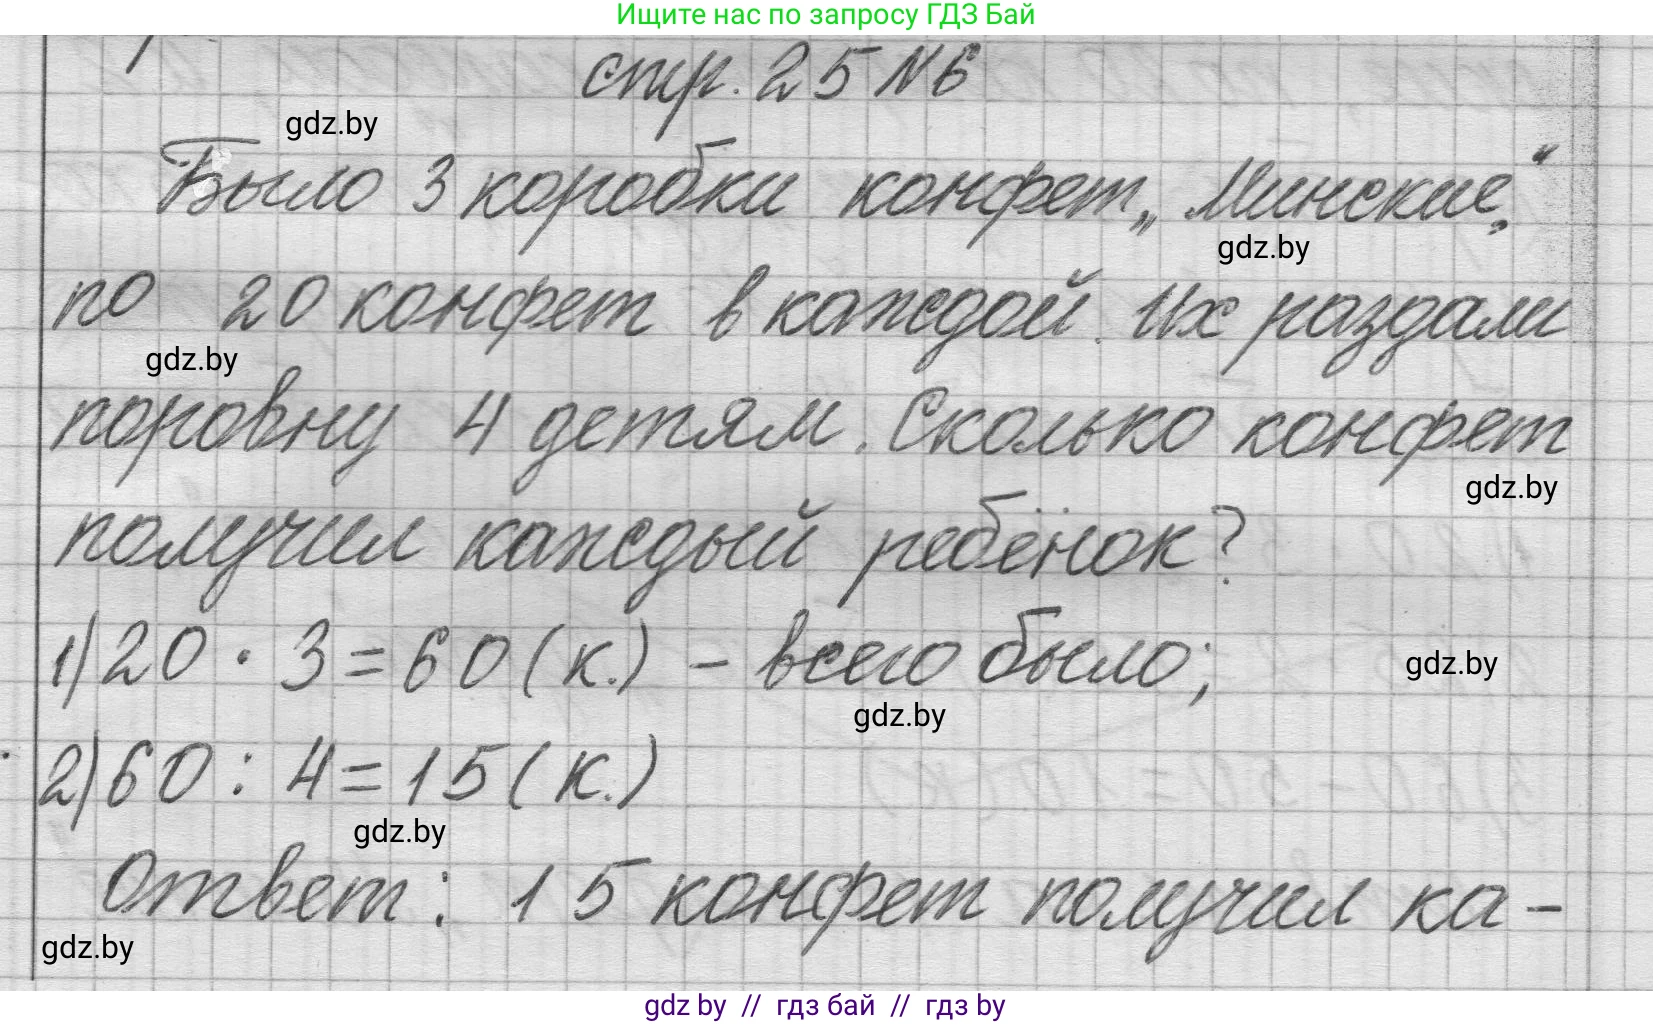 Ищите нас по запросу ГДЗ Бай
стр. 25 №6
gdz.by
Было 3 коробки конфет „Минские“,
gdz.by
по 20 конфет в каждой. Их раздали
gdz.by
поровну 4 детям. Сколько конфет
gdz.by
получил каждый ребёнок?
1) 20 · 3 = 60 (к.) - всего было;
gdz.by
gdz.by
2) 60 : 4 = 15 (к.)
gdz.by
Ответ: 15 конфет получил ка-
gdz.by
gdz by // гдз бай // гдз by